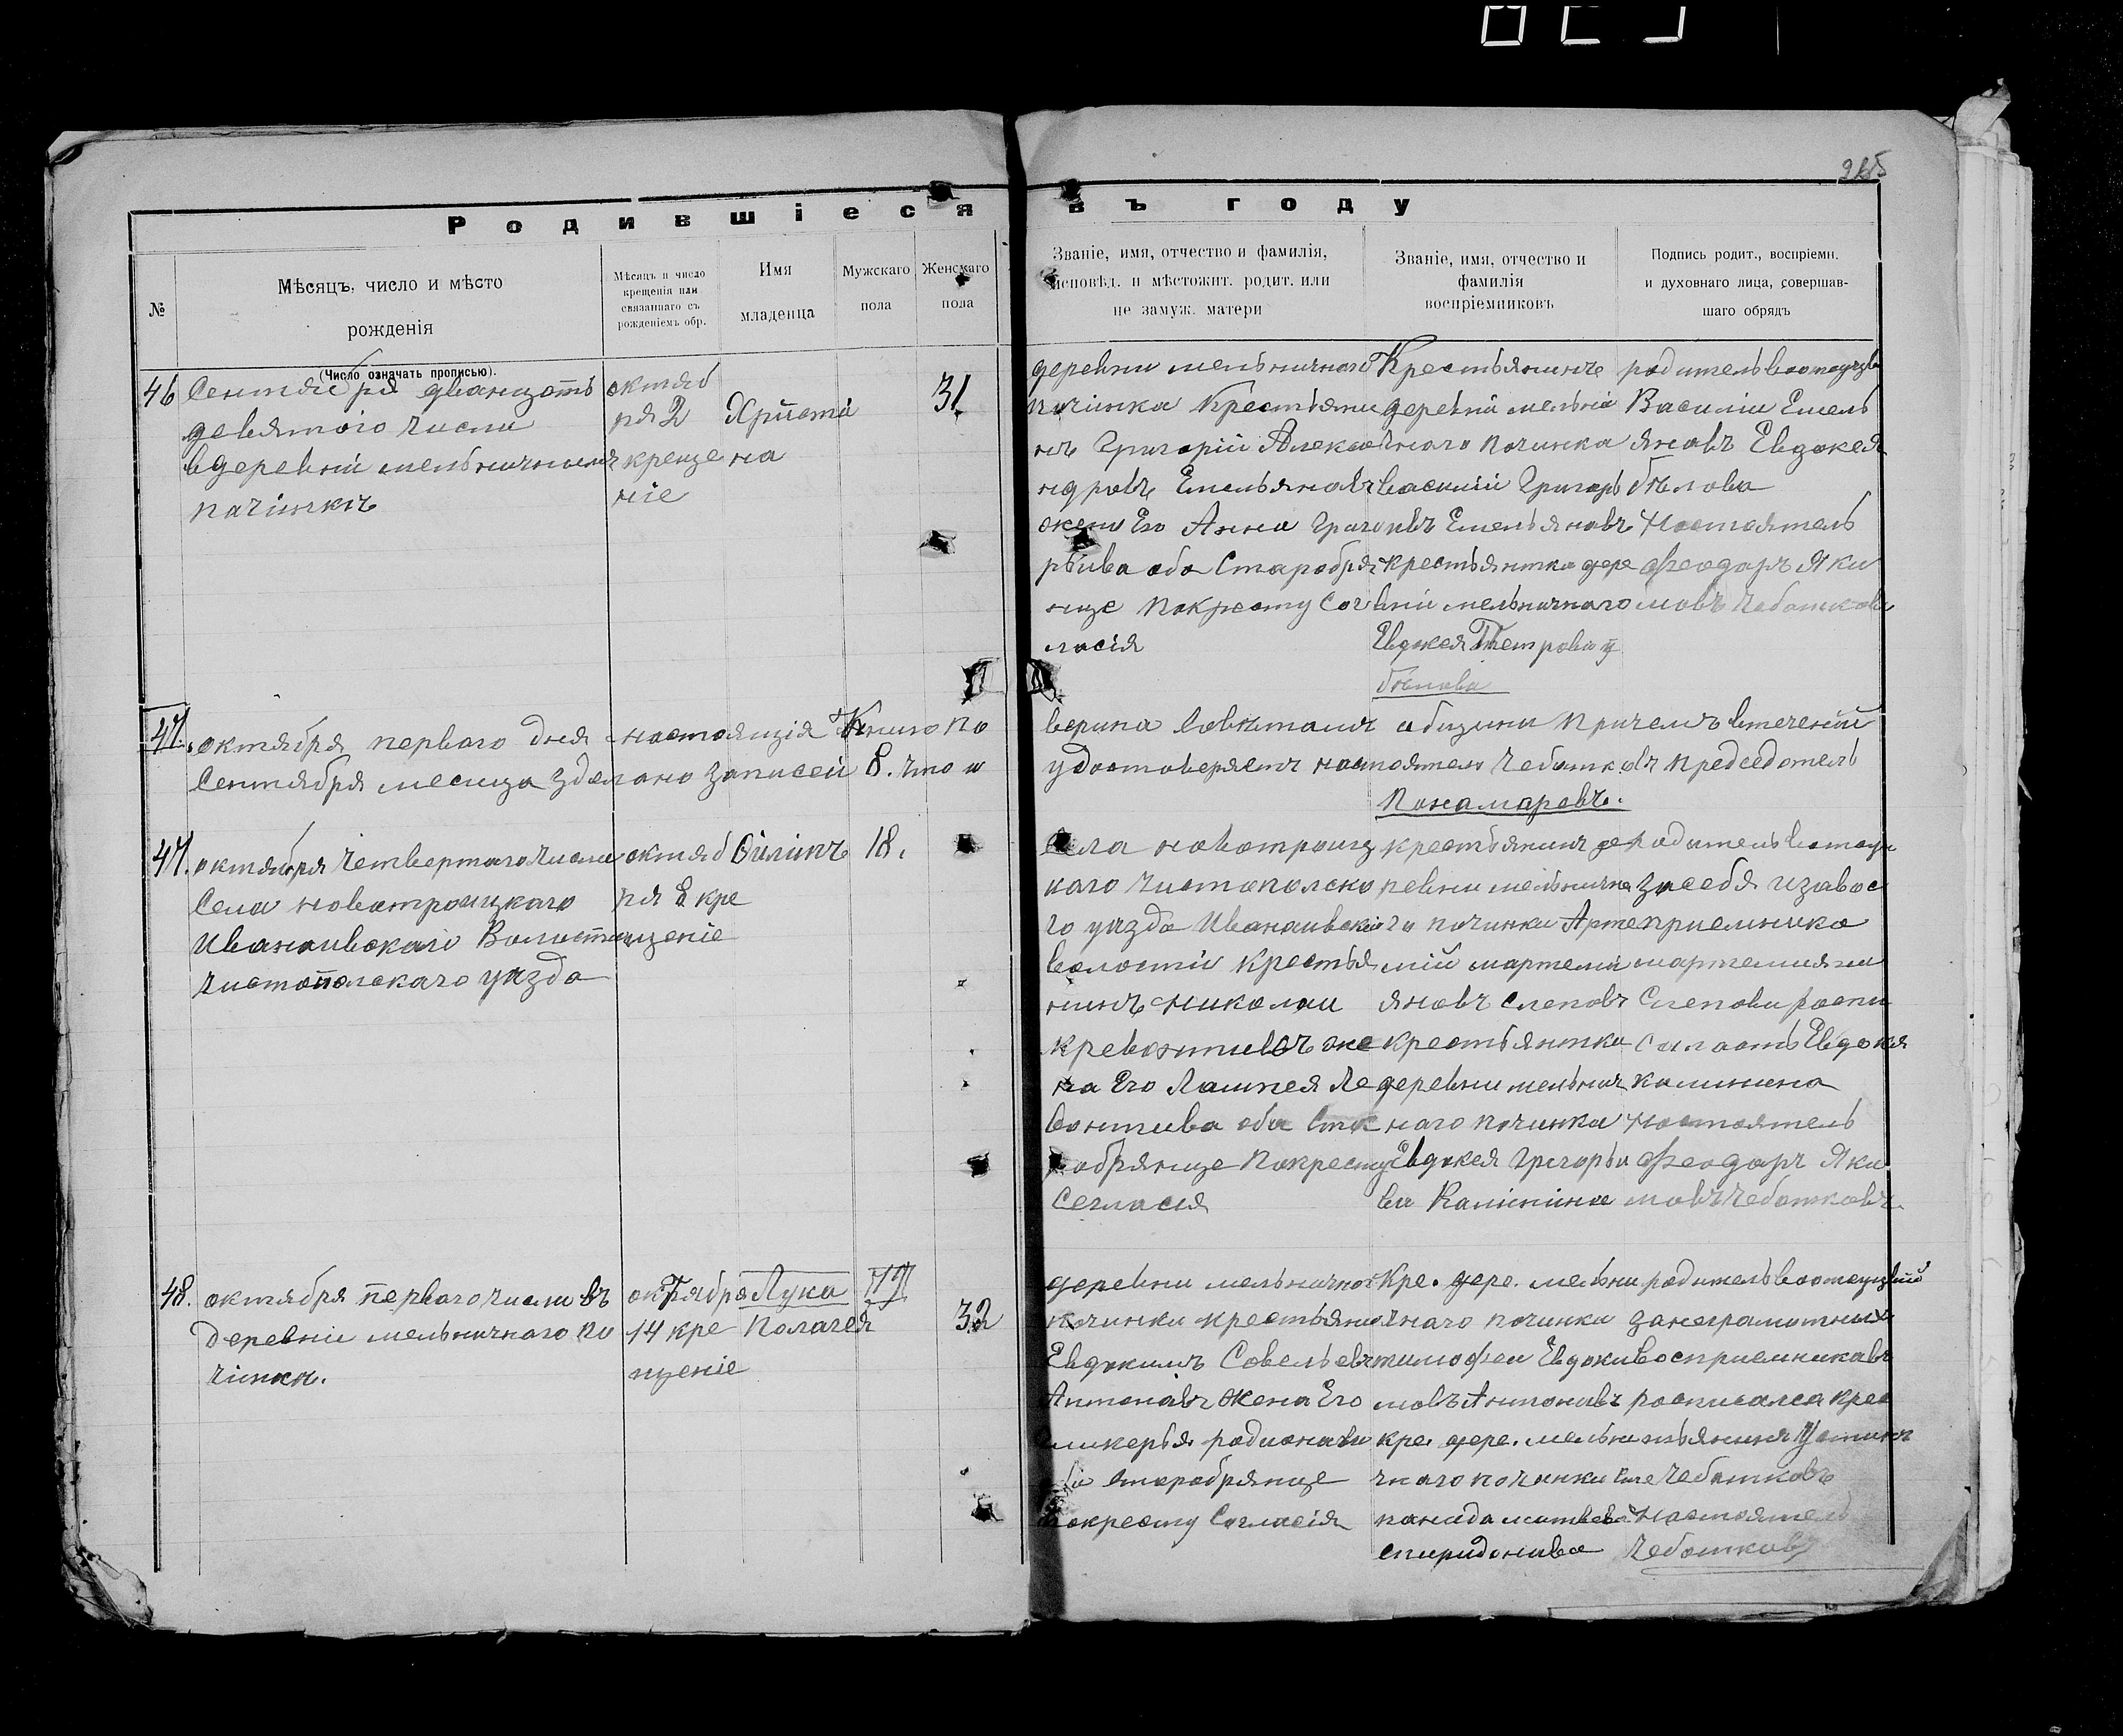 265
Родившіеся въ году
№
Мѣсяцъ, число и мѣсто
рожденія
(Число означать прописью).
Мѣсяцъ и число
крещенія или
связаннаго съ
рожденіемъ обр.
Имя
младенца
Мужскаго
пола
Женскаго
пола
Званіе, имя, отчество и фамилія,
исповѣд. и мѣстожит. родит. или
не замуж. матери
Званіе, имя, отчество и
фамилія
воспріемниковъ
Подпись родит., воспріемн.
и духовнаго лица, совершав-
шаго обрядъ
46
Сентяб ря дванцоть
девятого числи
вдеревни мельничним
пачинкѣ
октяб
ря 2
креще
ніе
Христи
на
31.
деревни мельничного
пачинка Крестьяни
нъ Григорій Алекса
ндровъ Емельяновъ
жена Его Анна Григо
рьива оба Старобря
нце покресту Сог
ласія
Крестьянинъ
деревни мельни
чнаго починка
василій Григорь
ивъ Емельяновъ
крестьянтка дере
вни мельничнаго
Евдокея Петрова
бѣлова
родитель
Василии Емель
яновъ Евдокея
бѣлова
Настоятель
Феодоръ Яки
мовъ Чебатков
47.
октября первого дня настоящія Книго по
Сентября месяца зделано записей 8. что и
верина Совѣтамъ общини причемъ втечений
удостоверяемъ настоятель Чебатковъ председотель
Понамаревъ.
47.
октября четвертаго числи
Села новотроицкаго
Иванаивскаго Воласти
Чистопольскаго уезда
октяб
ря 8 кре
щеніе
Филипъ
18.
Села новотроиц
каго чистопольско
го уезда Иванаивской
воласти крестья
нинъ николаи
Левонтиевъ же
на Его Лампея Ле
вонтива оба Ста
робрянце покресту
Согласия
крестьянинъ де
ревни мельнична
го починки Арте
мій мартеми
яновъ слеповъ
крестьянтка
деревни мельнич
наго починка
Евдокея Григорьи
ва Калинина
родитель
за себя изавос
приемника
мартемияна
Слепова роспи
салась Евдокея
калинина
Настоятель
Феодоръ Яки
мовъ Чебатковъ.
48.
октября первого числи въ
деревни мельничнаго по
чинки.
октября
14 кре
щеніе
Лука
Полагея
19
32
деревни мельничног
починки крестьянин
Евдокимъ Совельевъ
Антоновъ жена Его
Гликерья родионавна
оба старобрянце
покресту Согласія
Кре. дере. мельни
чнаго починки
тимофеи Евдоки
мовъ Антоновъ
кре. дере. мельни
чнаго починки
матвева
спиридонива
родитель
занеграмотных
восприемникавъ
росписалса крес
тьянинъ Устинъ
Чебатковъ
Настоятель
Чебатковъ